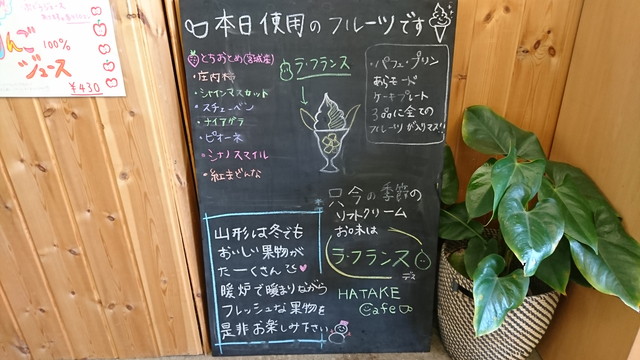 りんご
100%
ジュース
¥430
本日使用のフルーツです
とちおとめ(宮城産)
・庄内柿
・シャインマスカット
・スチューベン
・ナイアガラ
・ピオーネ
・シナノスマイル
・紅まどんな
ラ・フランス
・パフェ・プリン
あらモード
ケーキプレート
3品に全ての
フルーツが入りマス!
只今の季節の
ソフトクリーム
お味は
ラ・フランス
デス
HATAKE
Cafe
山形は冬でも
おいしい果物が
たーくさん
暖炉で暖まりながら
フレッシュな果物を
是非お楽しみ下さい